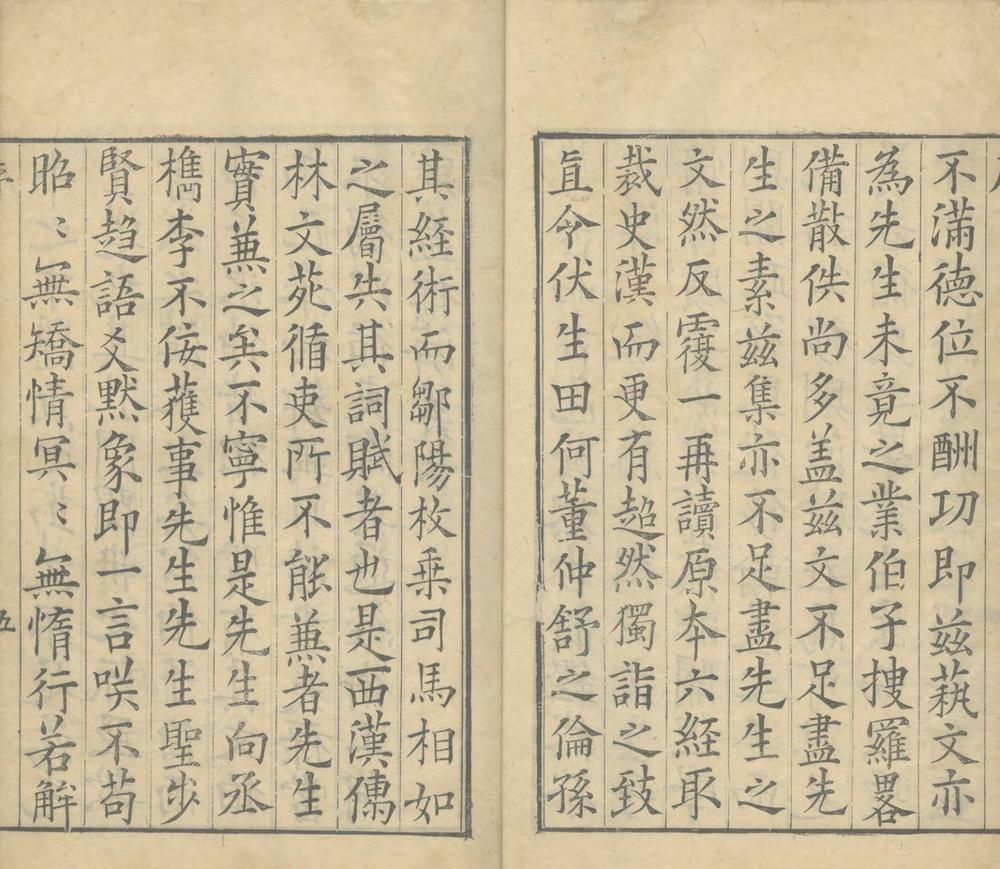 不滿德位不酬功即茲蓺文亦
為先生未竟之業伯子搜羅畧
備散佚尚多盖茲文不足盡先
生之素茲集亦不足盡先生之
文然反覆一再讀原本六經取
裁史漢而更有超然獨詣之致
直令伏生田何董仲舒之倫孫
其經術而鄒陽枚乗司馬相如
之屬失其詞賦者也是西漢儒
林文苑循吏所不能兼者先生
實兼之矣不寧惟是先生向丞
檇李不佞獲事先生先生聖步
賢趋語爻默象即一言咲不苟
昭〻無矯情冥〻無惰行若解
五